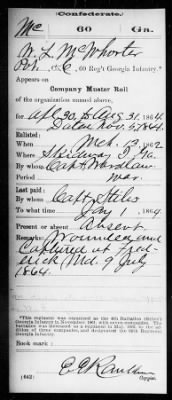 (Confederate.)
Mc 60 Ga.
W. L. McWhorter
Pvt., Co. C, 60 Reg't Georgia Infantry.*
Appears on
Company Muster Roll
of the organization named above,
for Apl 30 to Aug 31, 1864.
Dated Nov. 5, 1864
Enlisted:
When Mch 13, 1862
Where Skidway, Ga.
By whom Capt Wardlaw
Period war
Last paid:
By whom Capt Stiles
To what time Jany 1, 1864
Present or absent Absent
Remarks: Wounded and
Captured at Fred-
erick, Md. 9 July
1864.
*This regiment was organized as the 4th Battalion (Stiles')
Georgia Infantry
Book mark:
(642) Copyist.